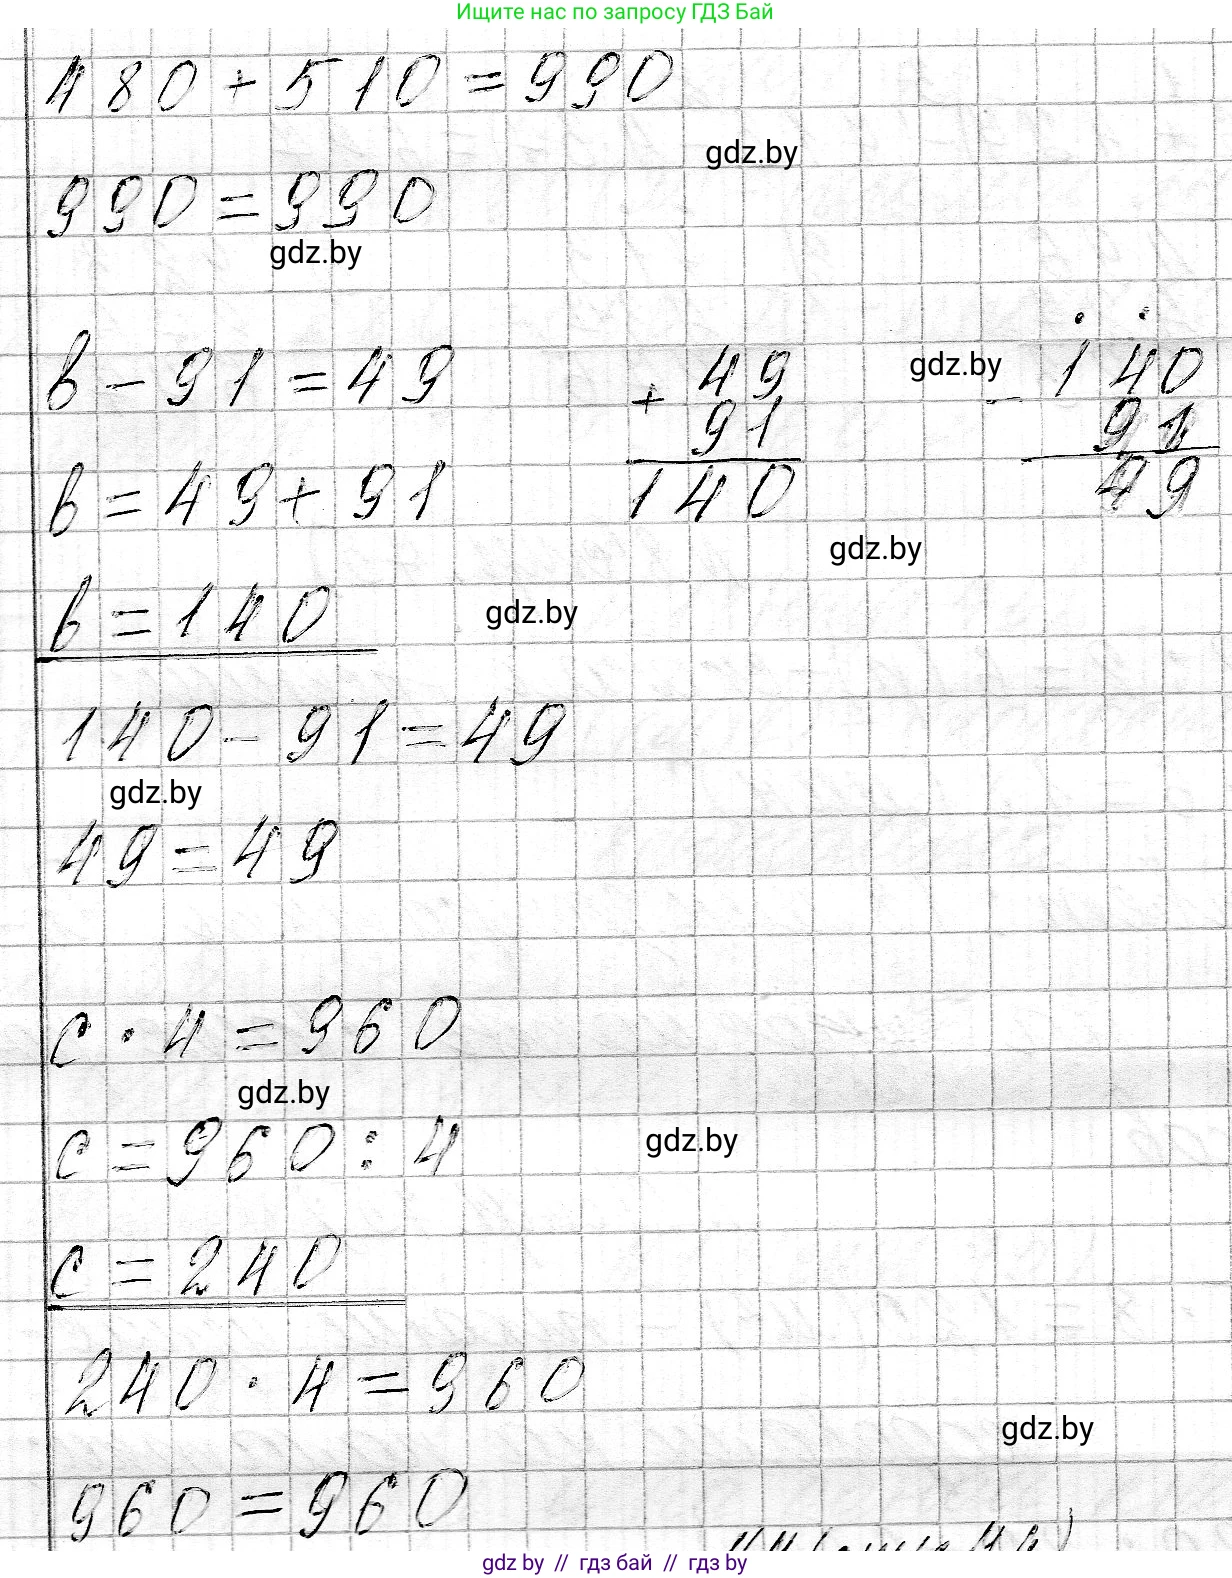 Ищите нас по запросу ГДЗ Бай
480 + 510 = 990
gdz.by
990 = 990
gdz.by
в - 91 = 49
+ 49
91
140
gdz.by
- 140
91
49
в = 49 + 91
gdz.by
в = 140
gdz.by
140 - 91 = 49
gdz.by
49 = 49
с · 4 = 960
gdz.by
с = 960 : 4
gdz.by
с = 240
240 · 4 = 960
gdz.by
960 = 960
gdz by // гдз бай // gdz by